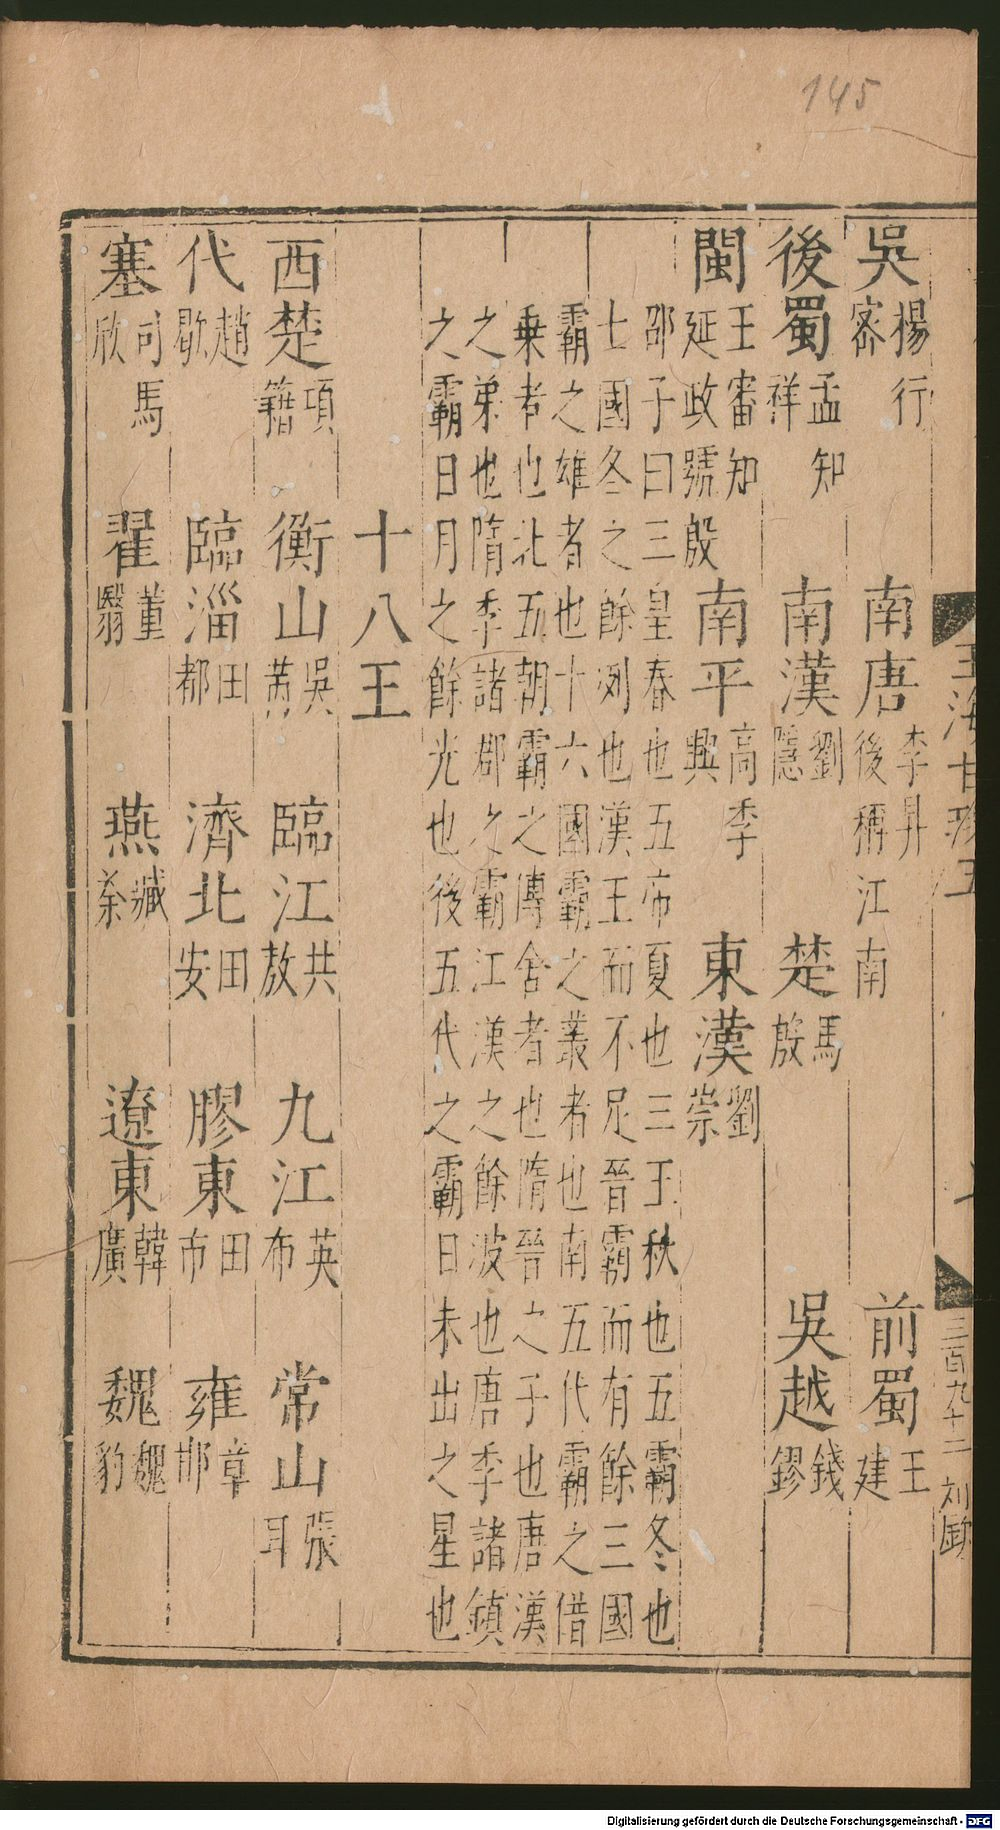 145
吳 楊行密 南唐 李昇後稱江南 前蜀 王建
後蜀 孟知祥 南漢 劉隱 楚 馬殷 吳越 錢鏐
閩 王審知延政號殷 南平 高季興 東漢 劉崇
邵子曰三皇春也五帝夏也三王秋也五霸冬也
七國冬之餘冽也漢王而不足晉霸而有餘三國
霸之雄者也十六國霸之叢者也南五代霸之借
乗者也北五朝霸之傳舍者也隋晉之子也唐漢
之弟也隋季諸郡之霸江漢之餘波也唐季諸鎮
之霸日月之餘光也後五代之霸日未出之星也
十八王
西楚 項籍 衡山 吳芮 臨江 共敖 九江 英布 常山 張耳
代 趙歇 臨淄 田都 濟北 田安 膠東 田市 雍 章邯
塞 司馬欣 翟 董翳 燕 臧荼 遼東 韓廣 魏 魏豹
玉海甘珠五
三百九十二
Digitalisierung gefördert durch die Deutsche Forschungsgemeinschaft - DFG